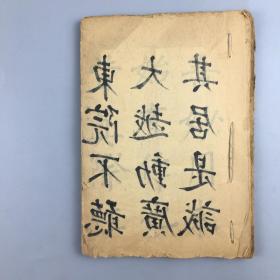 其居是誠
大越動廣
東院不聽